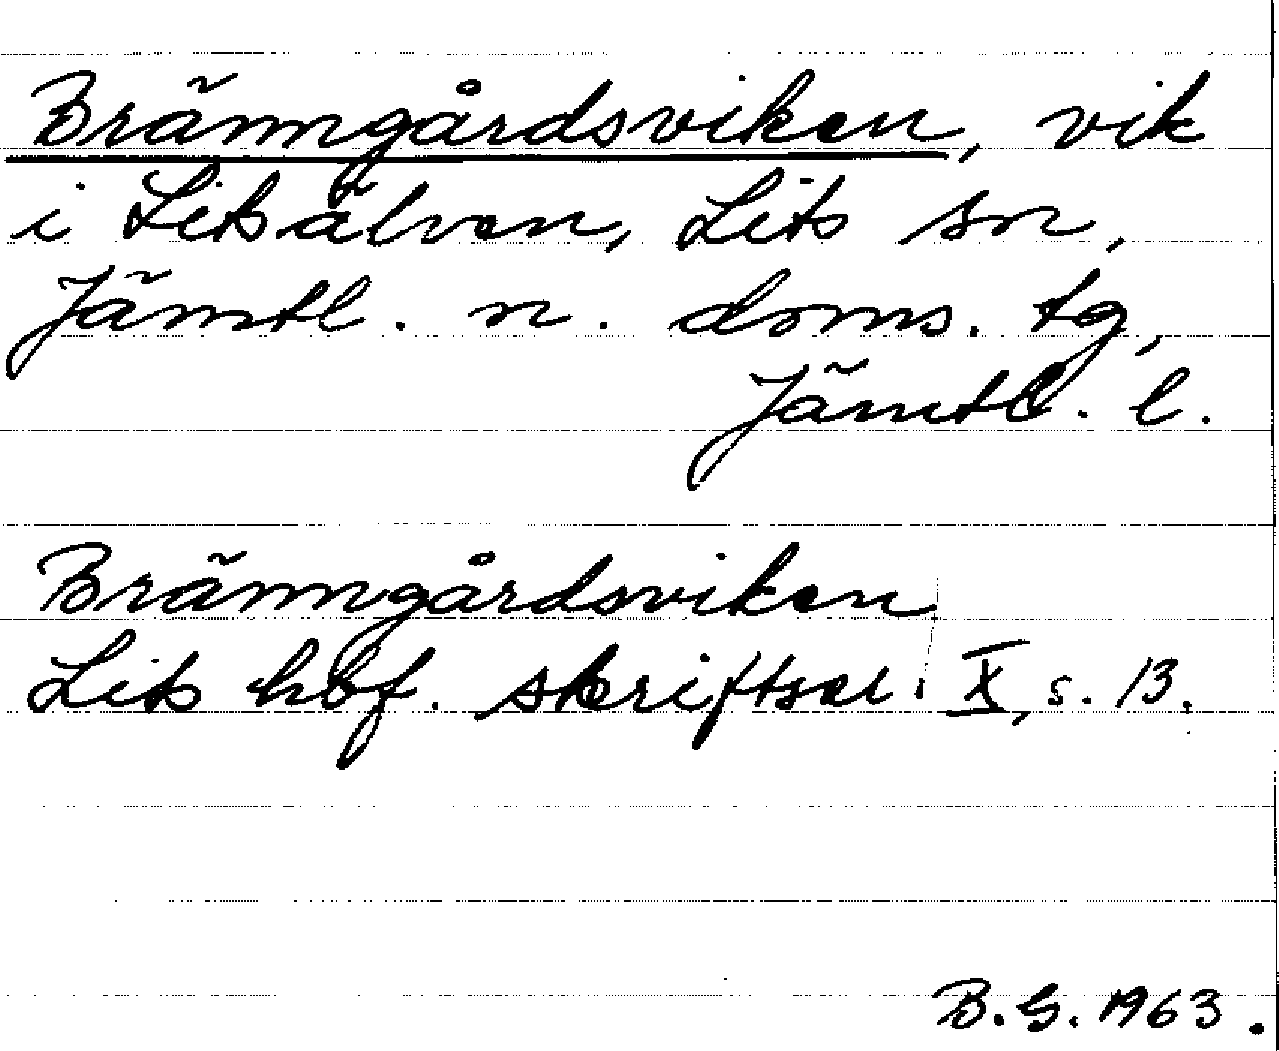 Bränngårdsviken, vik
i Litsälven, Lits sn,
Jämtl. n. doms. tg,
Jämtl. l.
Bränngårdsviken
Lits hbf. skriftser. X, s. 13.
B.G. 1963.